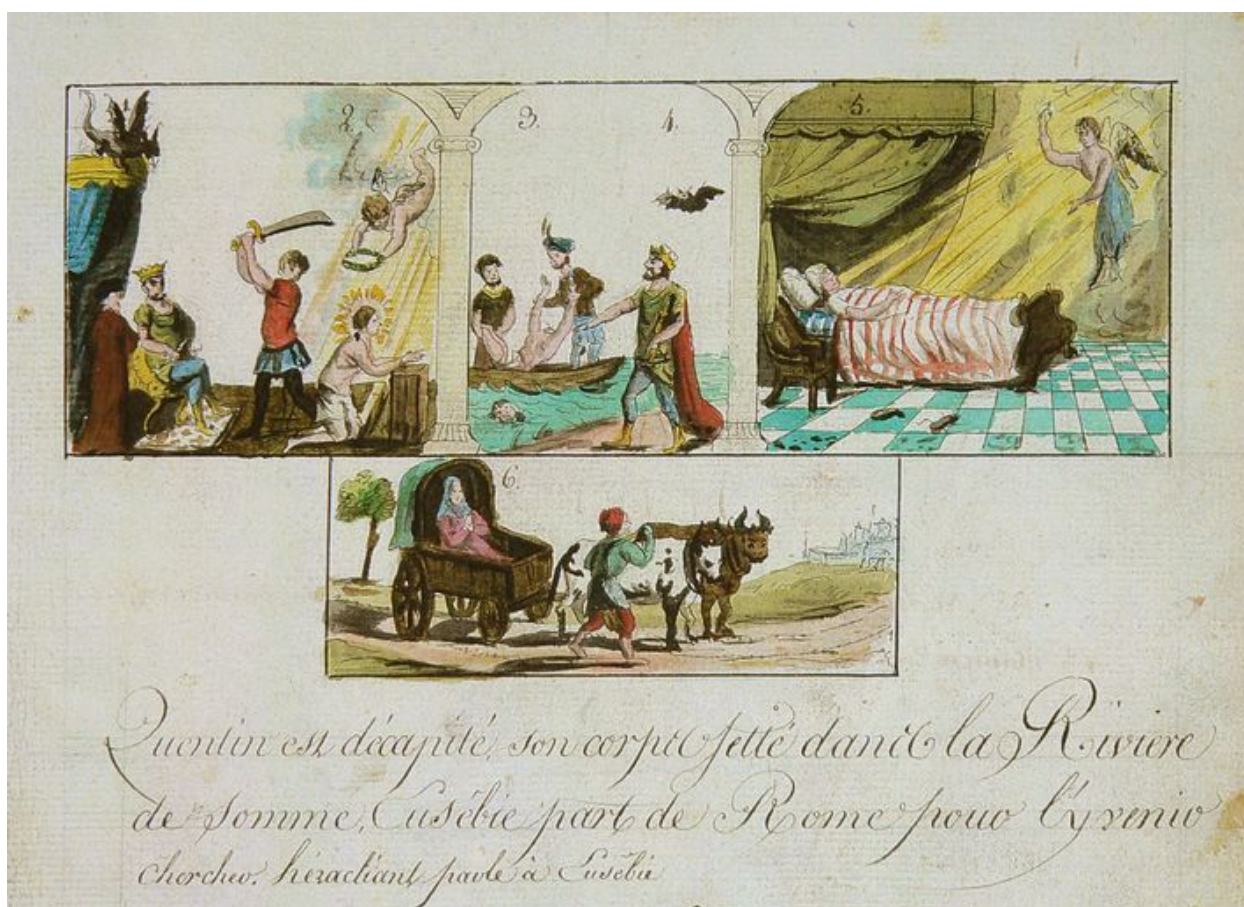 1.
2.
3.
4.
5.
6.
Quentin est décapité, son corps jetté dans la Riviere
de Somme, Eusébie part de Rome pour l'y venir
chercher. héracliant parle à Eusébie